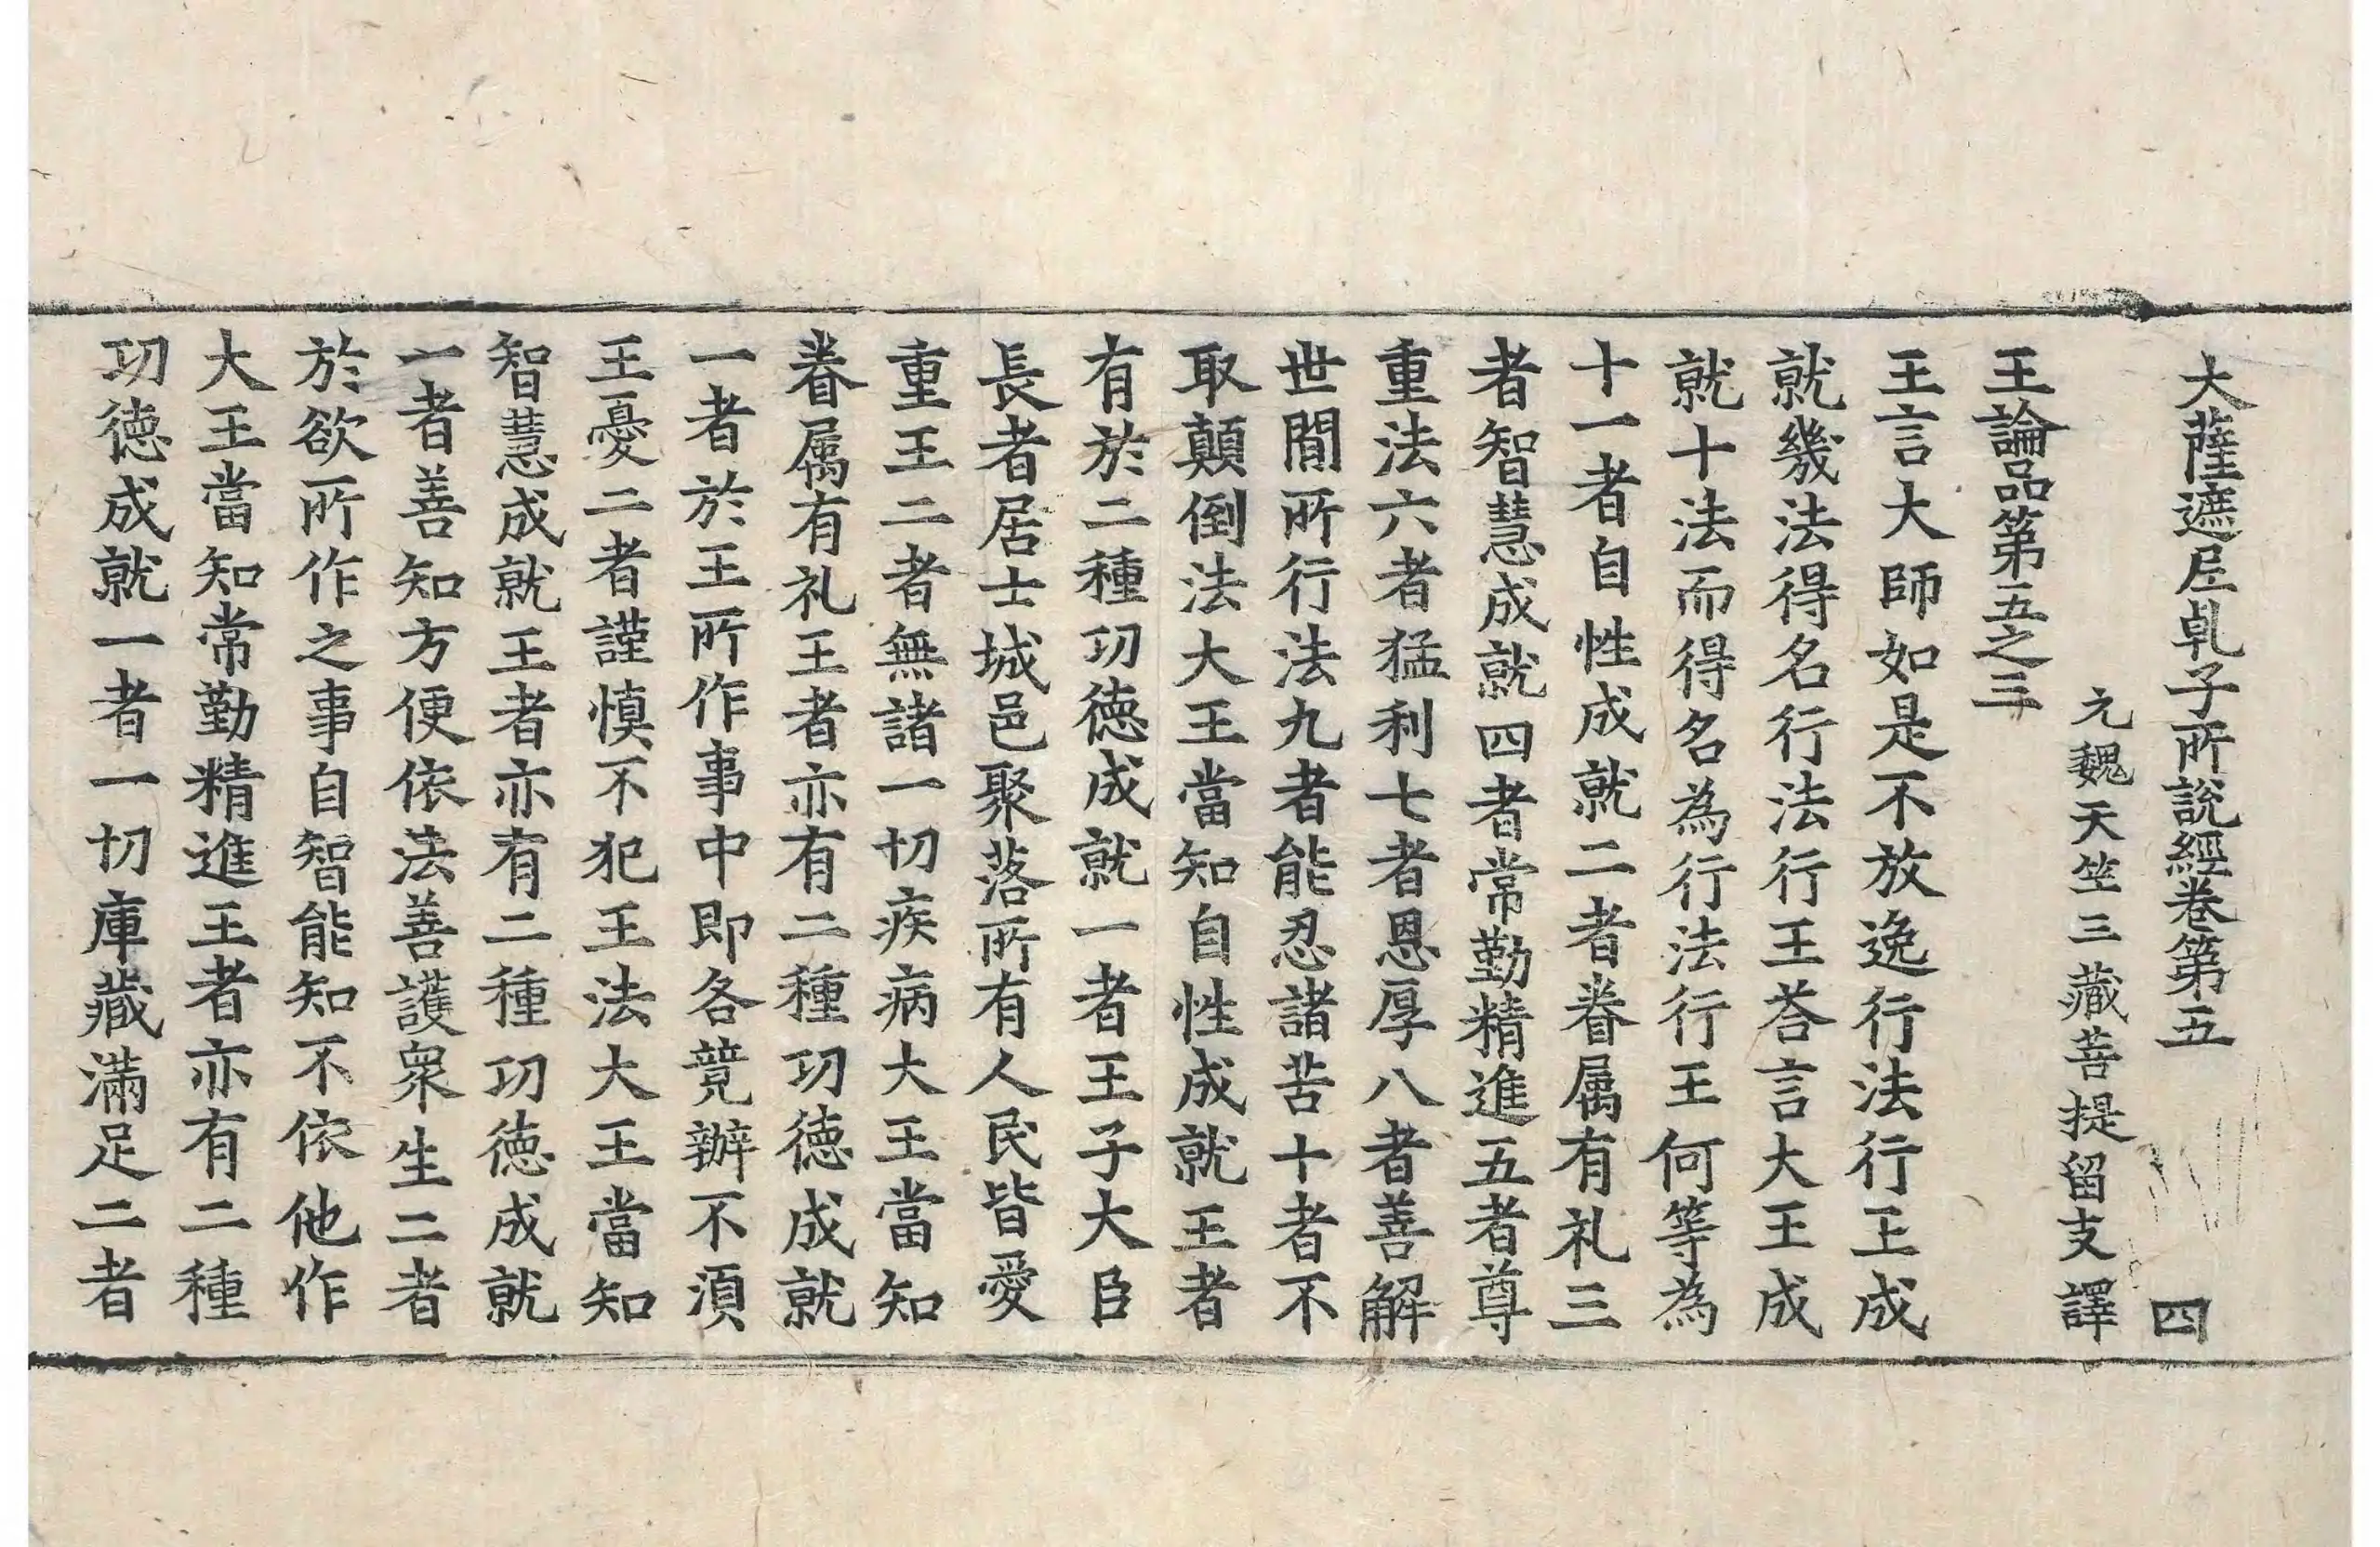 大薩遮尼乹子所說經卷第五 四
元魏天竺三藏菩提留支譯
王論品第五之三
王言大師如是不放逸行法行王成
就幾法得名行法行王荅言大王成
就十法而得名為行法行王何等為
十一者自性成就二者眷属有礼三
者智慧成就四者常勤精進五者尊
重法六者猛利七者恩厚八者善解
世間所行法九者能忍諸苦十者不
取顛倒法大王當知自性成就王者
有於二種功德成就一者王子大臣
長者居士城邑聚落所有人民皆愛
重王二者無諸一切疾病大王當知
眷属有礼王者亦有二種功德成就
一者於王所作事中即各競辦不湏
王憂二者謹慎不犯王法大王當知
智慧成就王者亦有二種功德成就
一者善知方便依法善護衆生二者
於欲所作之事自智能知不依他作
大王當知常勤精進王者亦有二種
功德成就一者一切庫藏滿足二者